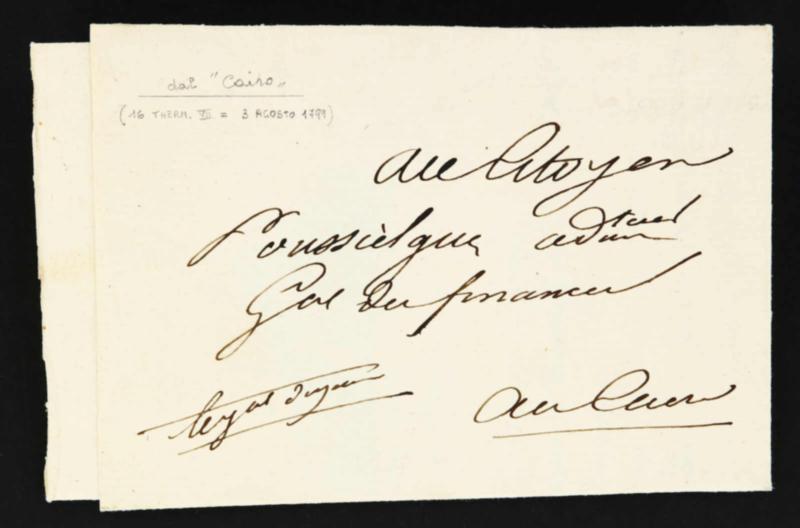 dal "Cairo"
(16 THERM. VII = 3 AGOSTO 1799)
au Citoyen
Poussielgue adm teur
Gal des finances
le gal dugua
au Caire